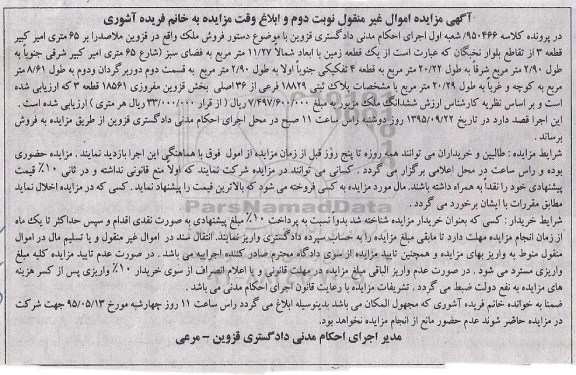 آگهی مزایده اموال غیر منقول نوبت دوم و ابلاغ وقت مزایده به خانم فریده آشوری
در پرونده کلاسه ۹۵۰۴۶۶/ شعبه اول اجرای احکام مدنی دادگستری قزوین با موضوع دستور فروش ملک واقع در قزوین ملاصدرا بر ۶۵ متری امیر کبیر
قطعه ۳ از تقاطع بلوار نخبگان که عبارت است از یک قطعه زمین با ابعاد شمالاً ۱۱/۲۷ متر مربع به فضای سبز (شارع ۶۵ متری امیر کبیر شرقی جنوباً به
طول ۲/۹۰ متر مربع شرقاً به طول ۲۰/۲۲ متر مربع به قطعه ۴ تفکیکی جنوباً اولا به طول ۲/۹۰ متر مربع به قسمت دوم دوربرگردان ودوم به طول ۸/۶۱ متر
مربع به کوچه و غرباً به طول ۲۰/۲۹ متر مربع با مشخصات پلاک ثبتی ۱۸۸۲۹ فرعی از ۳۶ اصلی بخش قزوین مفروزی ۱۸۵۶۱ قطعه ۳ که ارزیابی شده
است و بر اساس نظریه کارشناس ارزش ششدانگ ملک مزبور به مبلغ ۷/۴۹۷/۶۰۰/۰۰۰ ریال ( از قرار ۳۳/۰۰۰/۰۰۰ ریال هر متری ) ارزیابی شده است .
این اجرا قصد دارد در تاریخ ۱۳۹۵/۰۹/۲۲ روز دوشنبه راس ساعت ۱۱ صبح در محل اجرای احکام مدنی دادگستری قزوین از طریق مزایده به فروش
برساند .
شرایط مزایده : طالبین و خریداران می توانند همه روزه تا پنج روز قبل از زمان مزایده از اموال فوق با هماهنگی این اجرا بازدید نمایند . مزایده حضوری
بوده و راس ساعت در محل اعلامی برگزار می گردد . کسانی می توانند در مزایده شرکت نمایند که اولاً منع قانونی نداشته و در ثانی ۱۰٪ قیمت
پیشنهادی خود را نقداً به همراه داشته باشند. مال مورد مزایده به کسی فروخته می شود که بالاترین قیمت را پیشنهاد نماید . کسی که در مزایده اخلال نماید
مطابق مقررات با ایشان برخورد می گردد .
ParsNamadData
شرایط خریدار : کسی که بعنوان خریدار مزایده شناخته شد بدوا نسبت به پرداخت ۱۰٪ مبلغ پیشنهادی به صورت نقدی اقدام و سپس حداکثر تا یك ماه
از زمان انجام مزایده مهلت دارد تا مابقی مبلغ مزایده را به حساب سپرده دادگستری واریز نمایند. انتقال سند در اموال غیر منقول و یا تسلیم مال در اموال
منقول منوط به واریز بهای مزایده و همچنین تایید مزایده از سوی دادگاه محترم صادر کننده اجراییه می باشد . در صورت عدم تایید مزایده کلیه مبلغ
واریزی مسترد می شود . در صورت عدم واریز الباقی مبلغ مزایده در مهلت قانونی و یا اعلام انصراف از سوی خریدار ۱۰٪ واریزی پس از کسر هزینه
های مزایده به نفع دولت ضبط می گردد . تشریفات مزایده با رعایت قانون اجرای احکام مدنی می باشد .
ضمنا به خوانده خانم فریده آشوری که مجهول المکان می باشد بدینوسیله ابلاغ می گردد راس ساعت ۱۱ روز چهارشنبه مورخ ۹۵/۰۵/۱۳ جهت شرکت
در مزایده حاضر شوند عدم حضور مانع از انجام مزایده نخواهد بود.
مدیر اجرای احکام مدنی دادگستری قزوین – مرعی